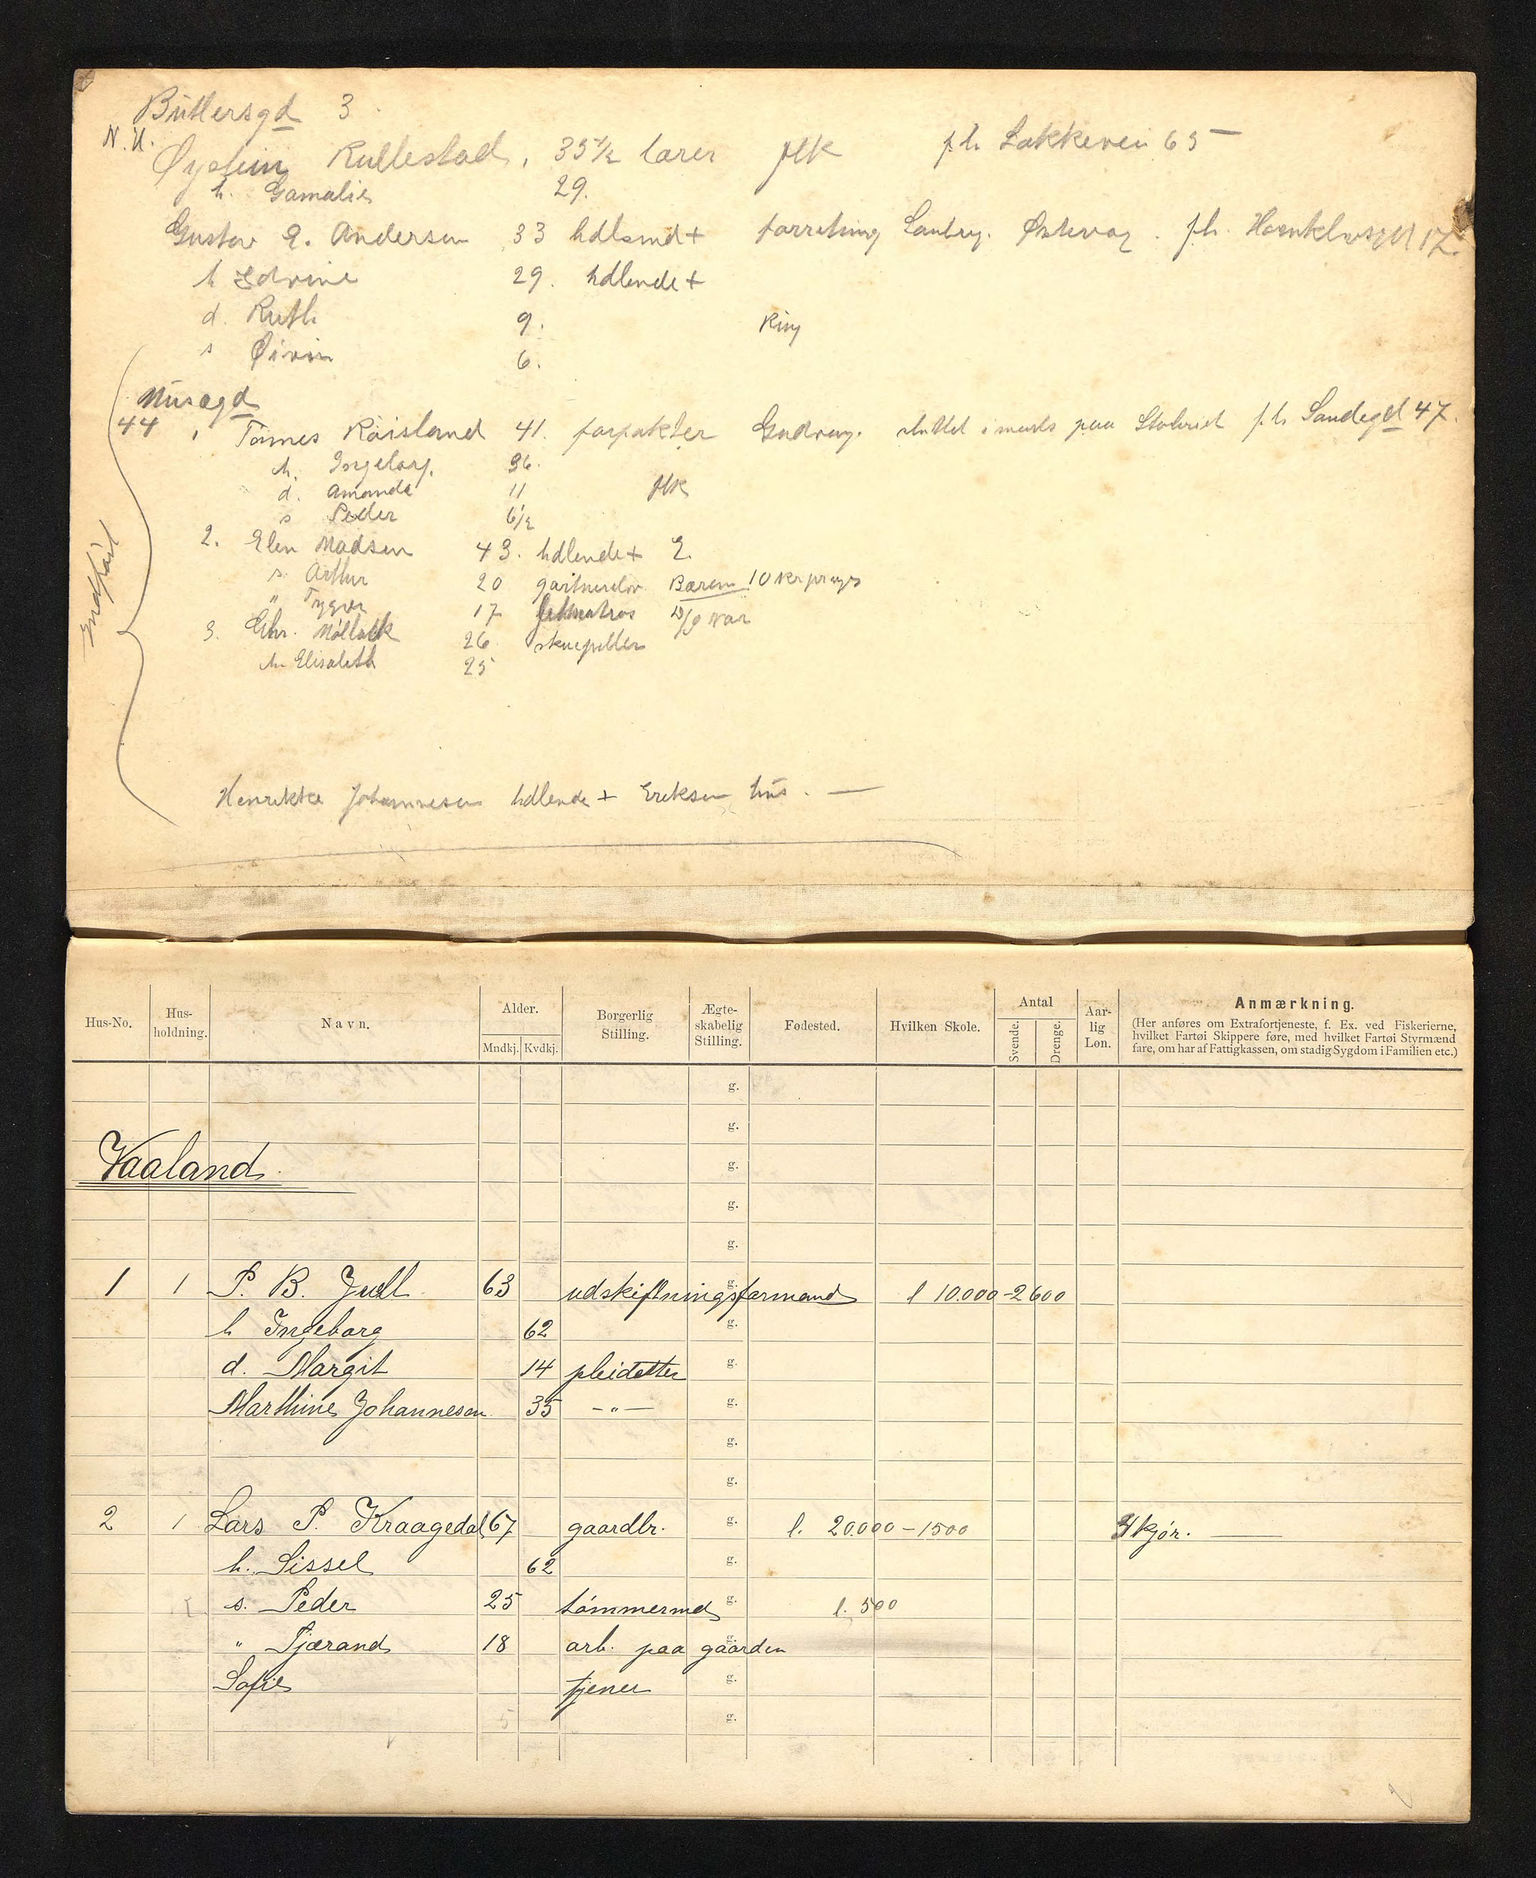 Butlersgd 3
N.U.
Øystein Rullestad, 35½ lærer flk f.h. Løkkevei 65
h. Gamalie 29.
Gustav E. Andersen 33 hdlsmd+ forretning Østervåg. f.h.
h Edvine 29. hdlende+
d. Ruth 9. King
s Øivin 6.
Musægd
44 1 Tønnes Røisland 41. forpakter f.h. Sandegd 47.
h. Ingeborg. 36.
d. Amanda 11 flk
s Peder 6½
2. Elen Madsen 43. hdlende+ E.
s. Arthur 20 gartnerelev
" Trygve 17
3. Chr. 26
h. Elisabeth 25
Indført
Henrikke Johannesen hdlende + Eriksen hus. —
Hus-No. Hus-holdning. Navn. Alder. Mndkj. Kvdkj. Borgerlig Stilling. Ægte-skabelig Stilling. Fødested. Hvilken Skole. Antal Svende. Drenge. Aar-lig Løn. Anmærkning.
(Her anføres om Extrafortjeneste, f. Ex. ved Fiskerierne,
hvilket Fartøi Skippere føre, med hvilket Fartøi Styrmænd
fare, om har af Fattigkassen, om stadig Sygdom i Familien etc.)
g.
g.
Vaaland g.
g.
g.
1 1 P. B. Juell 63 udskiftningsformand g. l 10.000 - 2600
h Ingeborg 62 g.
d. Margit 14 pleidatter g.
Marthine Johannesen 35 - " - g.
g.
g.
2 1 Lars P. Kraagedal 67 gaardbr. g. l. 20.000 - 1500 kjør. —
h. Sissel 62 g.
s. Peder 25 tømmermd g. l. 500
" Tjærand 18 arb. paa gaarden g.
Sofie tjener g.
g.